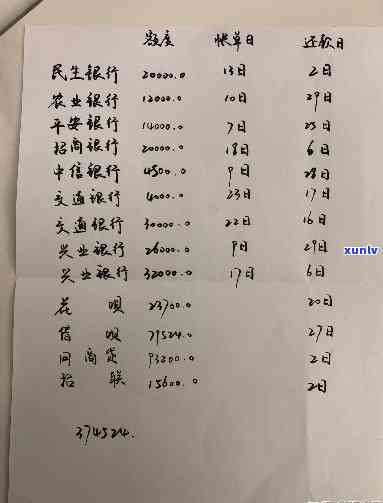 额度 帐单日 还款日
民生银行 20000.0 13日 2日
农业银行 12000.0 10日 29日
平安银行 14000.0 7日 25日
招商银行 20000.0 18日 6日
中信银行 4500.0 9日 28日
交通银行 4000.0 23日 17日
交通银行 30000.0 22日 16日
兴业银行 26000.0 9日 29日
xunlv
兴业银行 32000.0 17日 6日
花呗 23700.0 20日
借呗 79524.0 27日
网商贷 93200.0 2日
招联 15600.0 2日
374524.